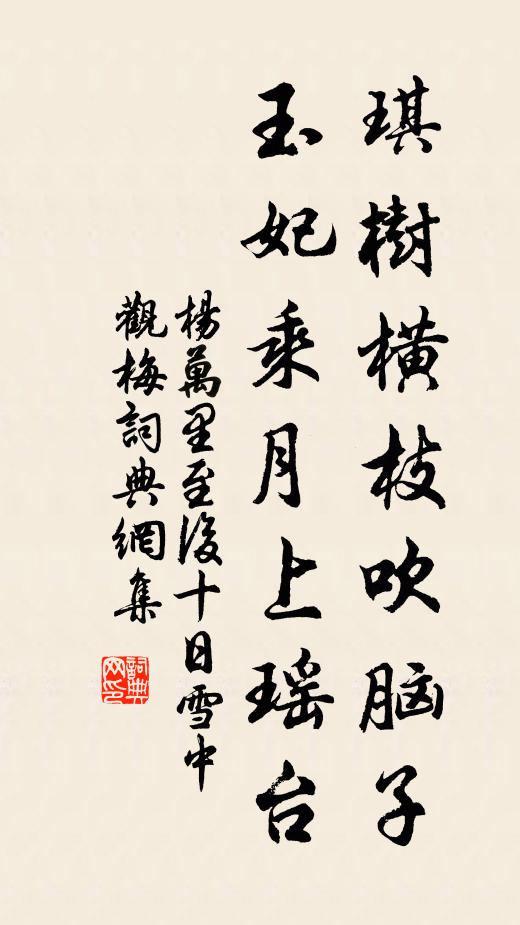 琪樹橫枝吹脑子
玉妃乘月上瑶台
楊萬里至後十日雪中
觀梅詞典網集
詞典网印